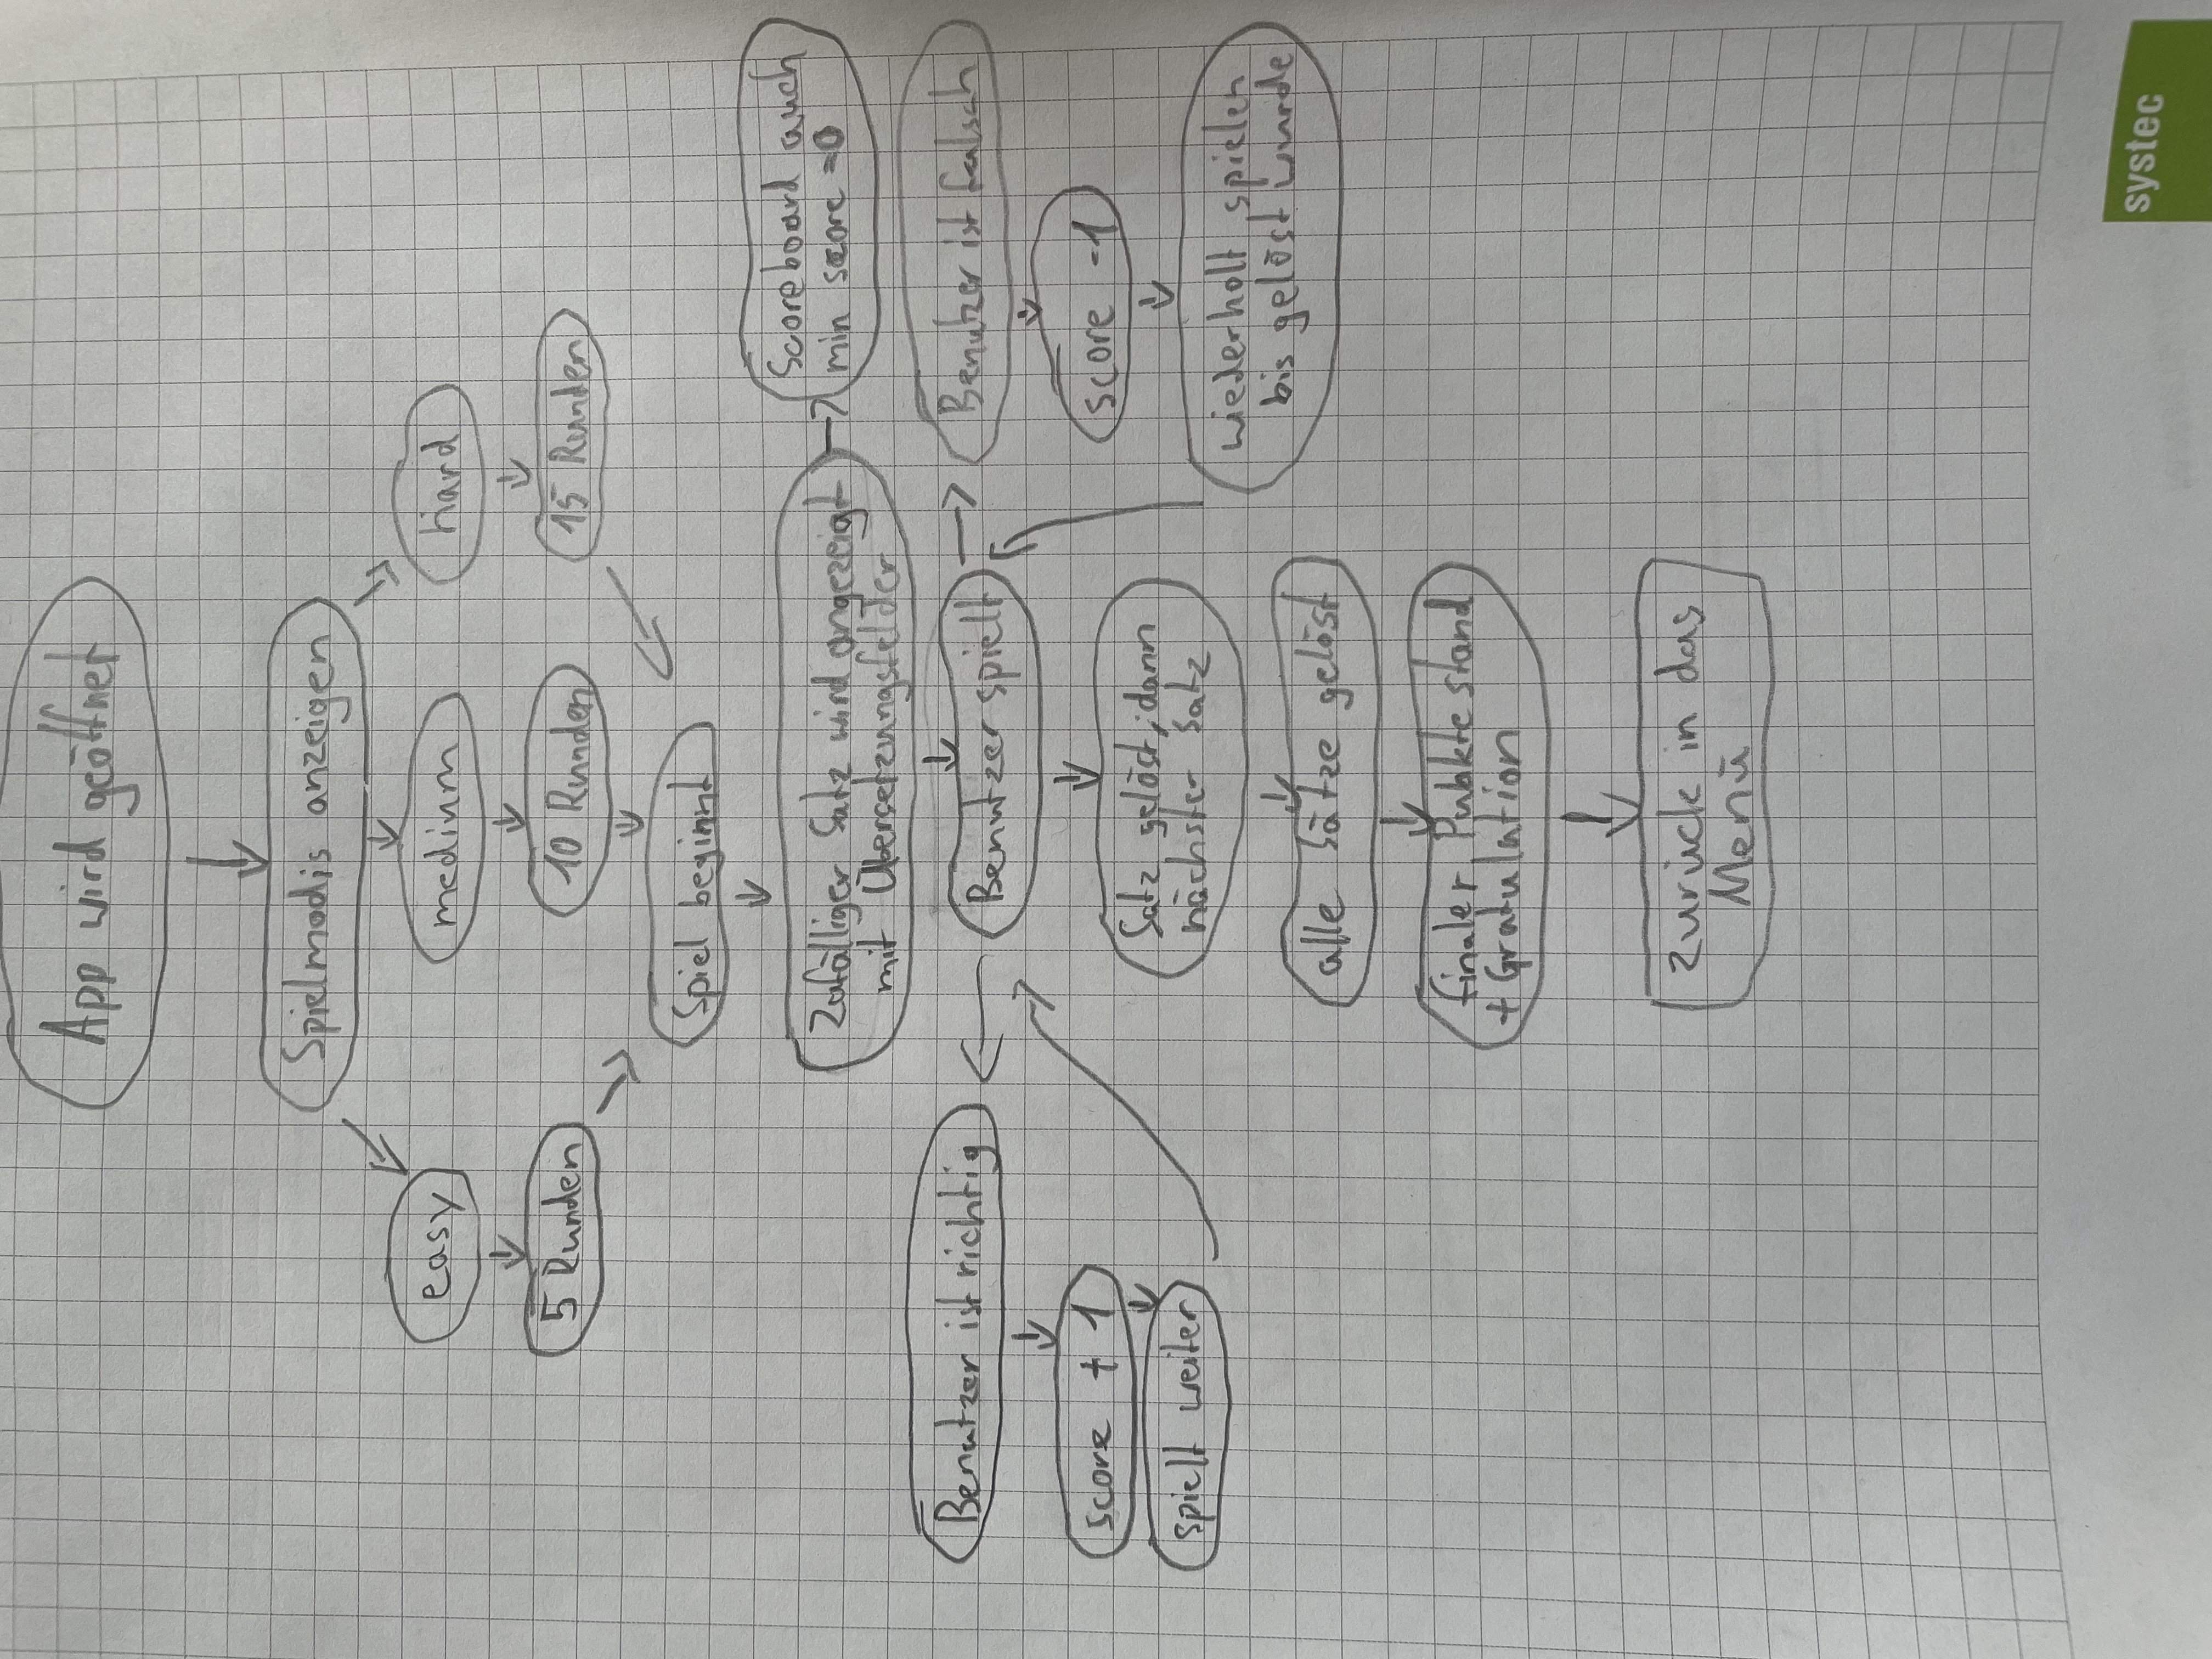 App wird geöffnet
Spielmodis anzeigen
easy
medium
hard
5 Runden
10 Runden
15 Runden
Spiel beginnt
Zufälliger Satz wird angezeigt
mit Übersetzungsfelder
Scoreboard auch
min score = 0
Benutzer ist richtig
Benutzer spielt
Benutzer ist falsch
score + 1
spielt weiter
score -1
Satz gelöst, dann
nächster Satz
wiederholt spielen
bis gelöst wurde
alle Sätze gelöst
finaler Punktestand
+ Gratulation
Zurück in das
Menü
systec